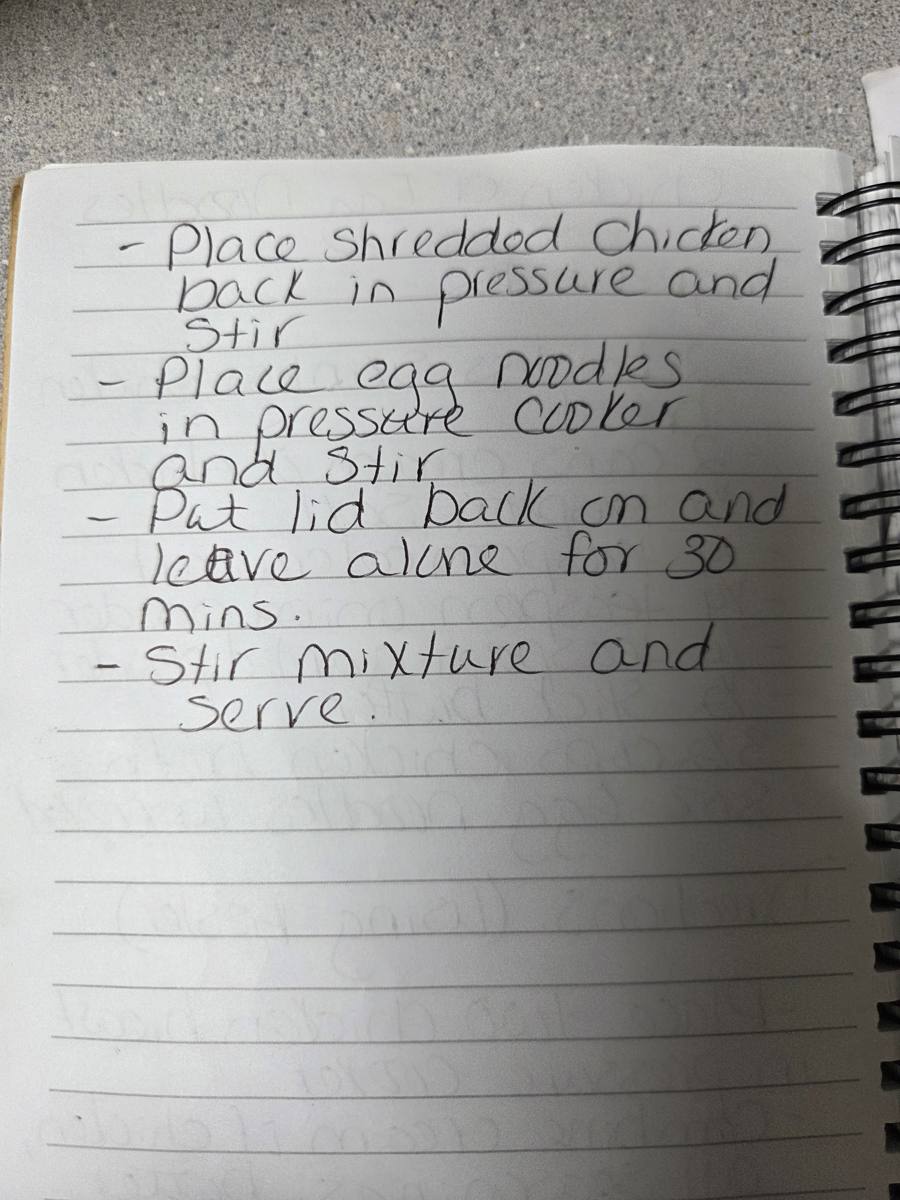 - Place shredded chicken
back in pressure and
stir
- Place egg noodles
in pressure cooker
and stir
- Put lid back on and
leave alone for 30
mins.
- Stir mixture and
serve.